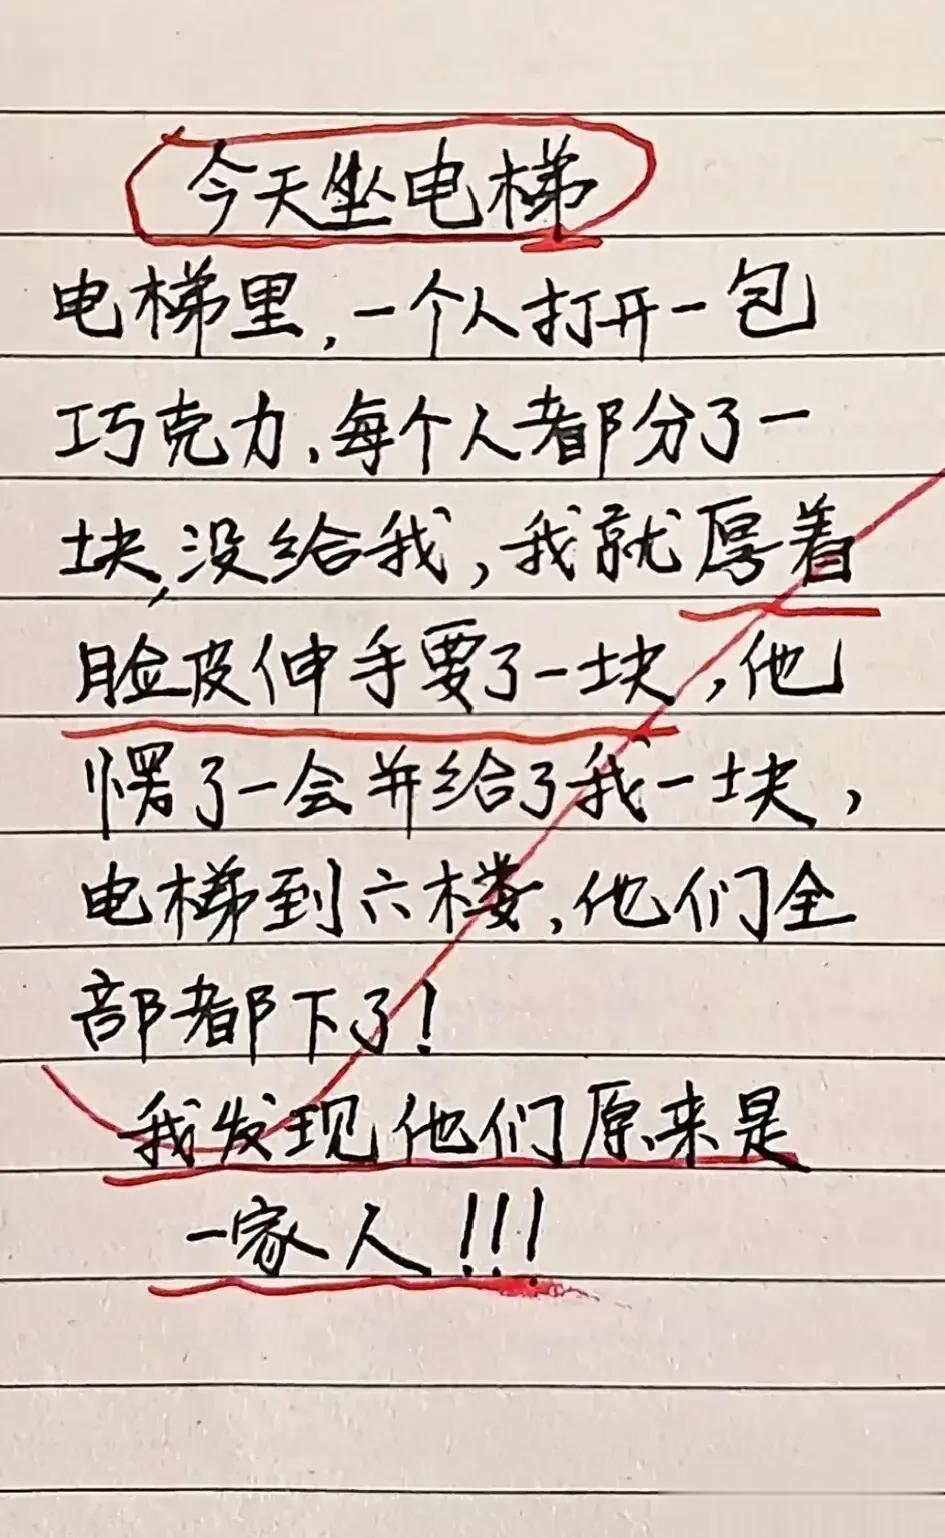 今天坐电梯
电梯里,一个人打开一包
巧克力,每个人都分了一
块,没给我,我就厚着
脸皮伸手要了一块,他
愣了一会并给了我一块,
电梯到六楼,他们全
部都下了!
我发现他们原来是
一家人!!!